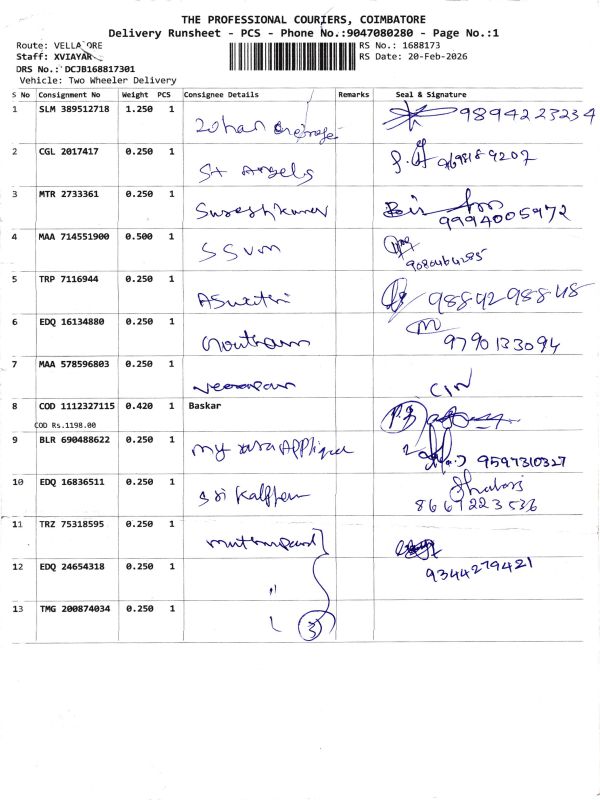 THE PROFESSIONAL COURIERS, COIMBATORE
Delivery Runsheet - PCS - Phone No.:9047080280 - Page No.:1
Route: VELLALORE
RS No.: 1688173
Staff: XVIAYAR
RS Date: 20-Feb-2026
DRS No.: DCJB168817301
Vehicle: Two Wheeler Delivery
S No Consignment No Weight PCS Consignee Details Remarks Seal & Signature
1 SLM 389512718 1.250 1 9894223234
2 CGL 2017417 0.250 1 St Angels 9698189207
3 MTR 2733361 0.250 1 Sureshkumar 9994005972
4 MAA 714551900 0.500 1 SSVM
5 TRP 7116944 0.250 1 Aswathi 9884298848
6 EDQ 16134880 0.250 1 Goutham 9790133094
7 MAA 578596803 0.250 1 Veerapan
8 COD 1112327115 0.420 1 Baskar
COD Rs.1198.00
9 BLR 690488622 0.250 1 My 9597310327
10 EDQ 16836511 0.250 1 Sri
11 TRZ 75318595 0.250 1
12 EDQ 24654318 0.250 1 " 9344279421
13 TMG 200874034 0.250 1 3